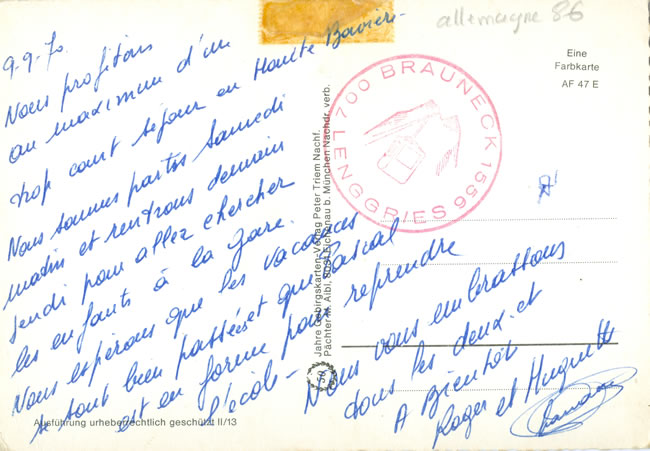 allemagne 86
9-9-70.
Nous profitons
au maximum d'un
trop court séjour en Haute Bavière-
Nous sommes partis Samedi
matin et rentrons demain
Jeudi pour aller chercher
les enfants à la gare.
Nous espérons que les vacances
se sont bien passées et que Pascal
est en forme pour reprendre
l'école-
Nous vous embrassons
tous les deux et
A Bientôt
Roger et Huguette
Eine
Farbkarte
AF 47 E
1700 BRAUNECK 1556
LENGGRIES
Jahre Gebirgskarten-Verlag Peter Triem Nachf.
Pächter M. Aibl, 8031 Eichenau b. München Nachdr. verb.
50
Ausführung urheberrechtlich geschützt II/13